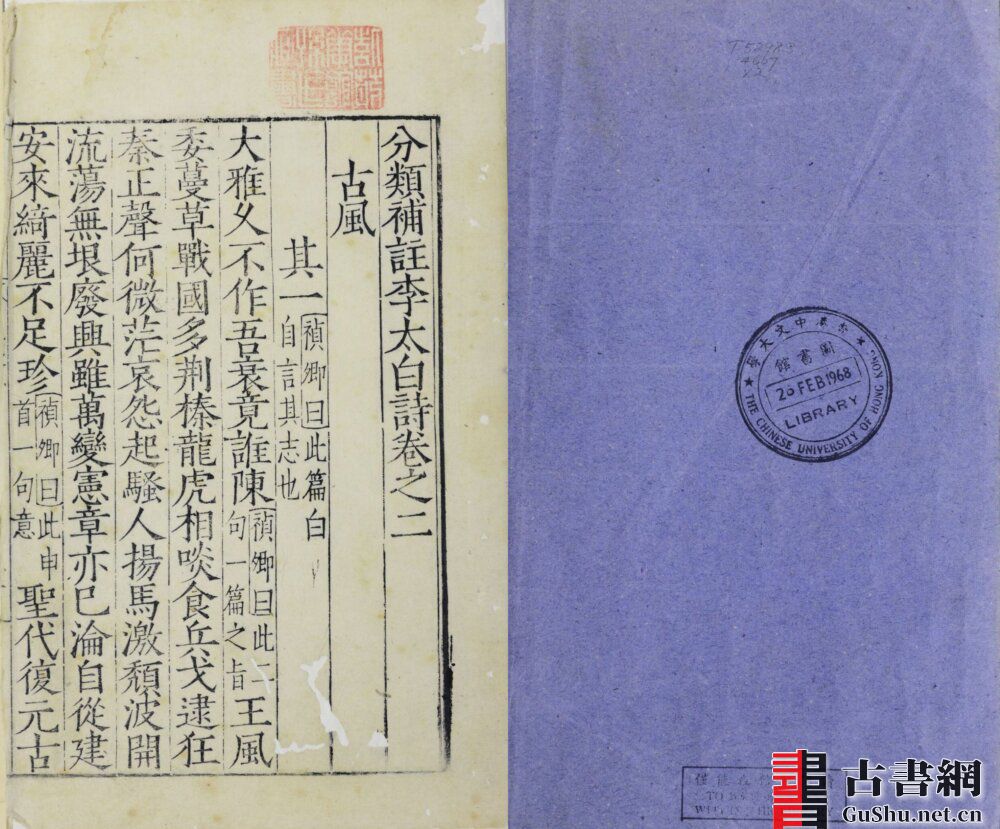 分類補註李太白詩卷之二
古風
其一禎卿曰此篇白自言其志也
大雅久不作吾衰竟誰陳禎卿曰此二句一篇之旨王風
委蔓草戰國多荆榛龍虎相啖食兵戈逮狂
秦正聲何微茫哀怨起騷人揚馬激頽波開
流蕩無垠廢興雖萬變憲章亦已淪自從建
安來綺麗不足珍禎卿曰此申首一句意聖代復元古
香港中文大學
圖書館
20 FEB 1968
LIBRARY
THE CHINESE UNIVERSITY OF HONG KONG
古書網
GuShu.net.cn